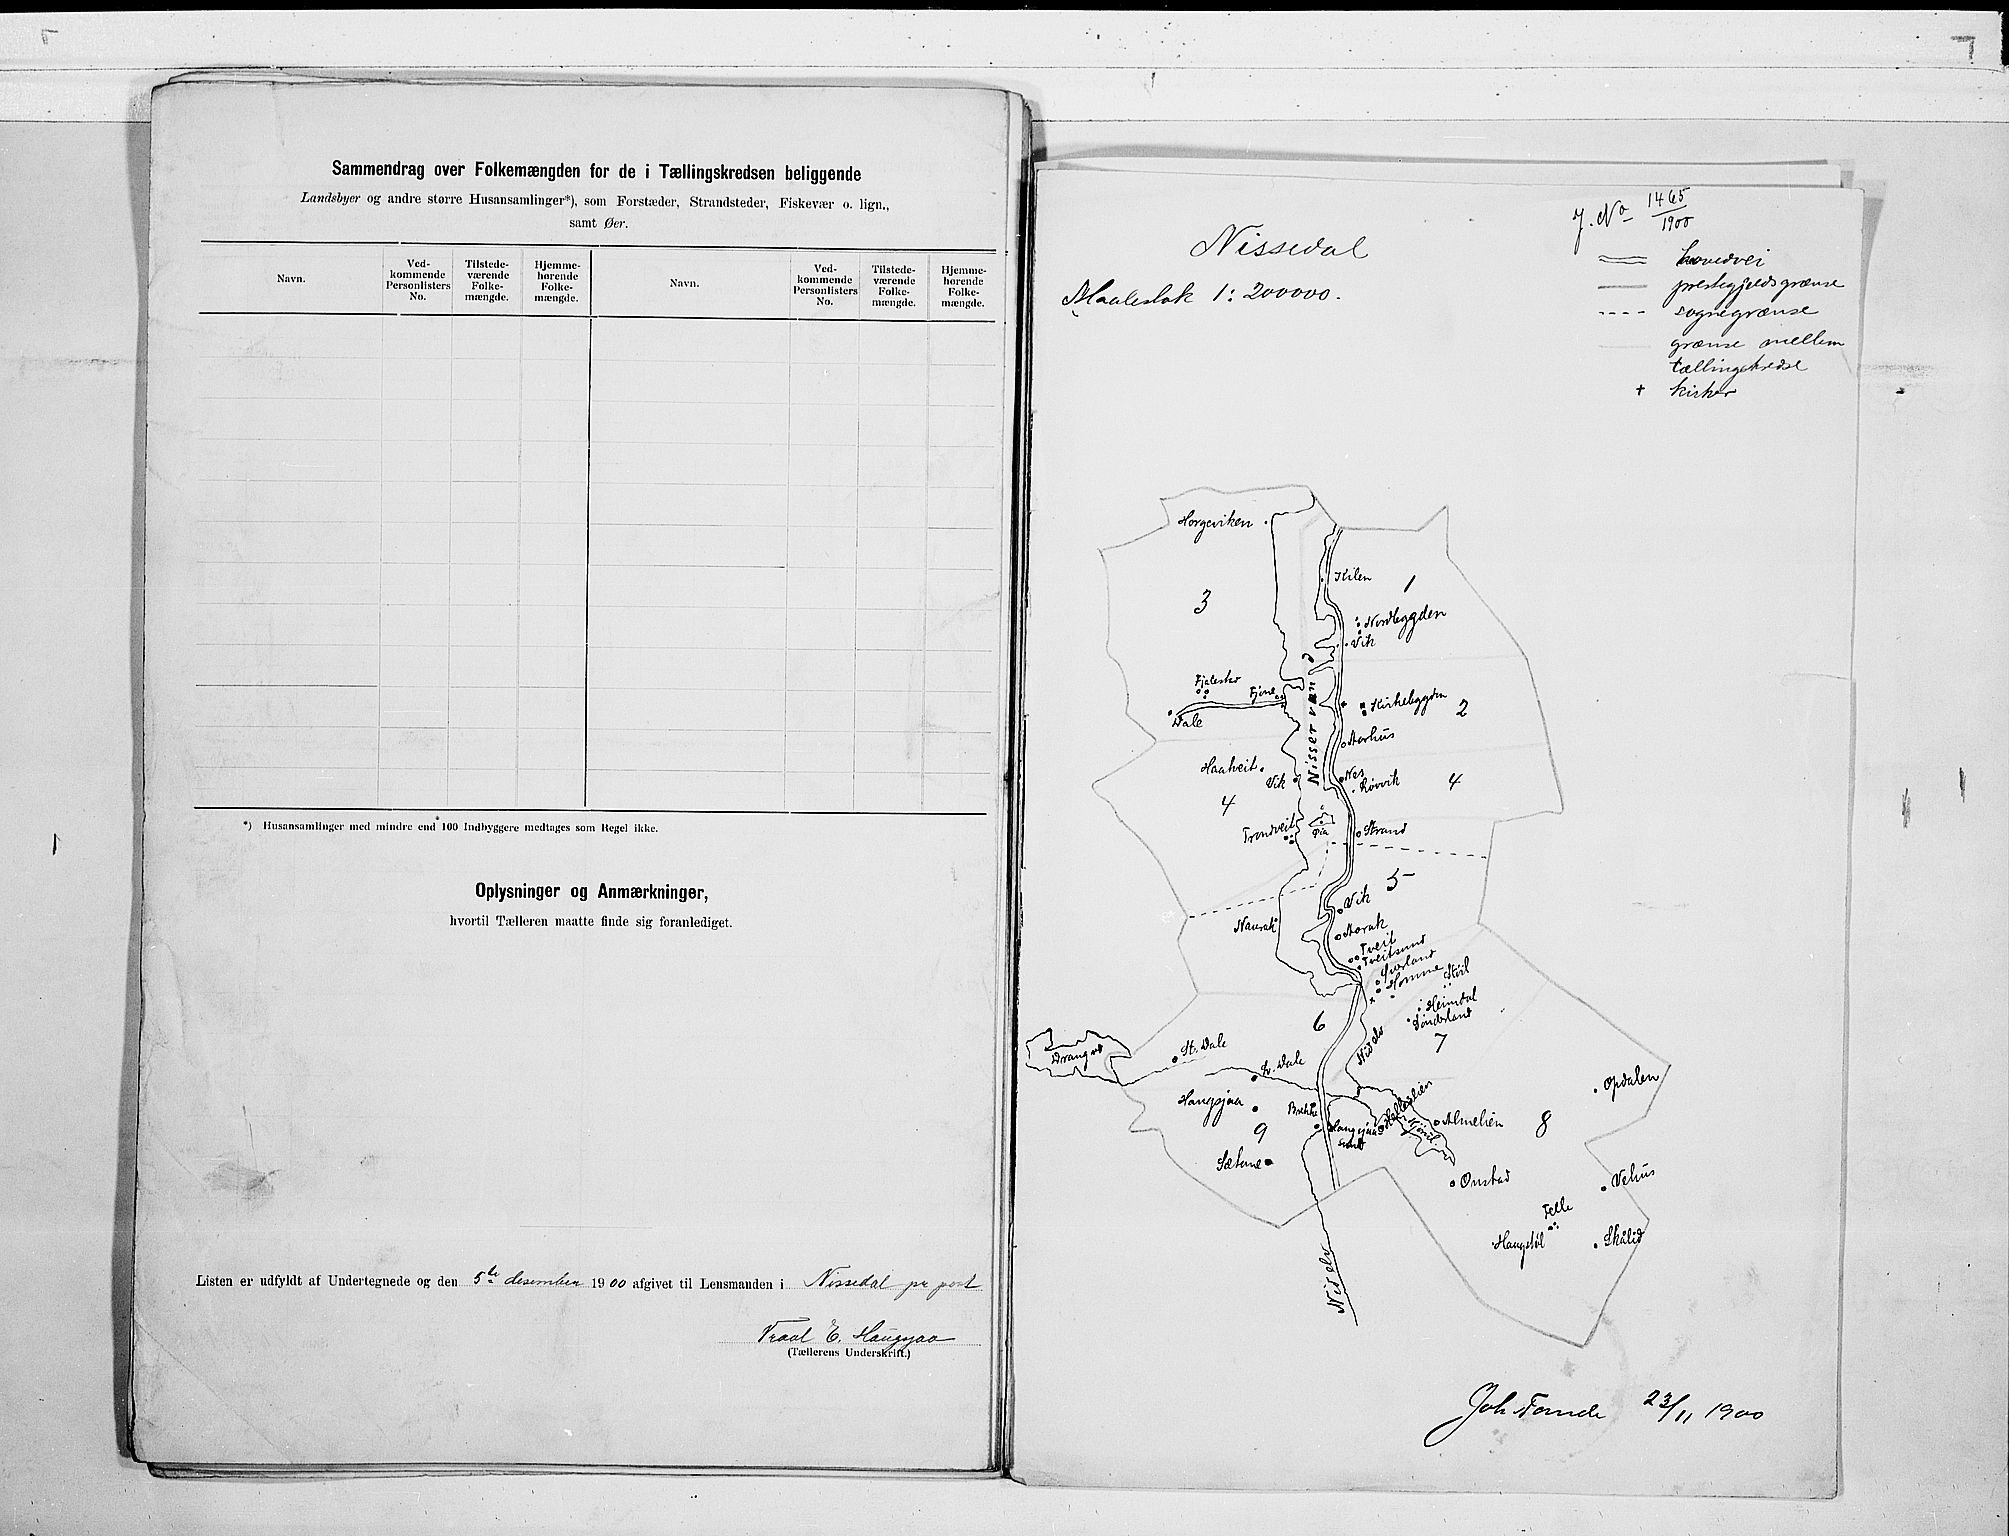 Sammendrag over Folkemængden for de i Tællingskredsen beliggende
Landsbyer og andre større Husansamlinger*), som Forstæder, Strandsteder, Fiskevær o. lign.,
samt Øer.
Navn.
Ved-
kommende
Personlisters
No.
Tilstede-
værende
Folke-
mængde.
Hjemme-
hørende
Folke-
mængde.
Navn.
Ved-
kommende
Personlisters
No.
Tilstede-
værende
Folke-
mængde.
Hjemme-
hørende
Folke-
mængde.
*) Husansamlinger med mindre end 100 Indbyggere medtages som Regel ikke.
Oplysninger og Anmærkninger,
hvortil Tælleren maatte finde sig foranlediget.
Listen er udfyldt af Undertegnede og den 5te desember 1900 afgivet til Lensmanden i Nissedal pr post
Traal E. Haugsjaa
(Tællerens Underskrift.)
J. No 1465
1900
Nissedal
Maalestok 1:200000.
hovedvei
prestegjeldsgrænse
sognegrænse
grænse mellem
tællingskredse
+ kirker
Horgeviken
Kilen
1
3
Nordbygden
Vik
Fjalestad
Fjone
Dale
Nisser vand
Kirkebygden
2
Storhus
Haatveit
Vik
Nes
Røvvik
4
4
Trondveit
Øia
Strand
5
Vik
Naurak
Storuk
Tveit
Tveitsund
Sørland
Homme
Støil
Heimdal
Sønderland
6
7
Nidelv
Drangvd
St. Dale
L. Dale
Opdalen
Haugsjaa
Brekke
Haugsjaa
sund
Almelien
8
9
Sætane
Onstad
Vehus
Felle
Haugstøl
Skålid
Nidelv
23/11 1900